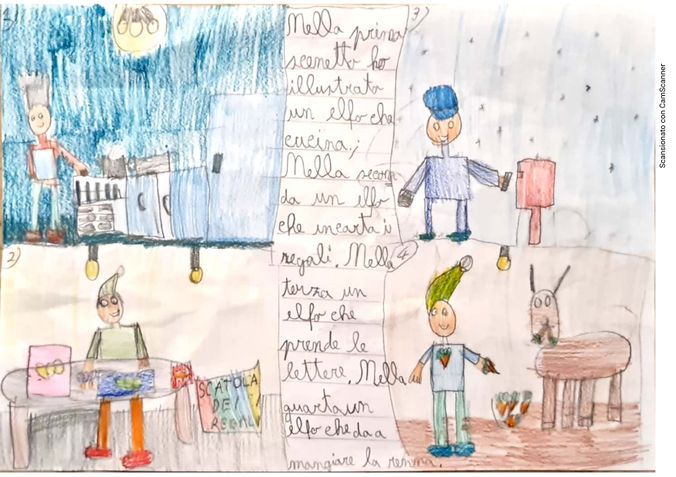 1)
Nella prima
scenetta ho
illustrato
un elfo che
cucina;
Nella secon
da un elfo
che incarta i
regali. Nella
terza un
elfo che
prende le
lettere. Nella
quarta un
elfo che da a
mangiare la renna.
2)
SCATOLA
DEI
REGALI
3)
4)
Scansionato con CamScanner